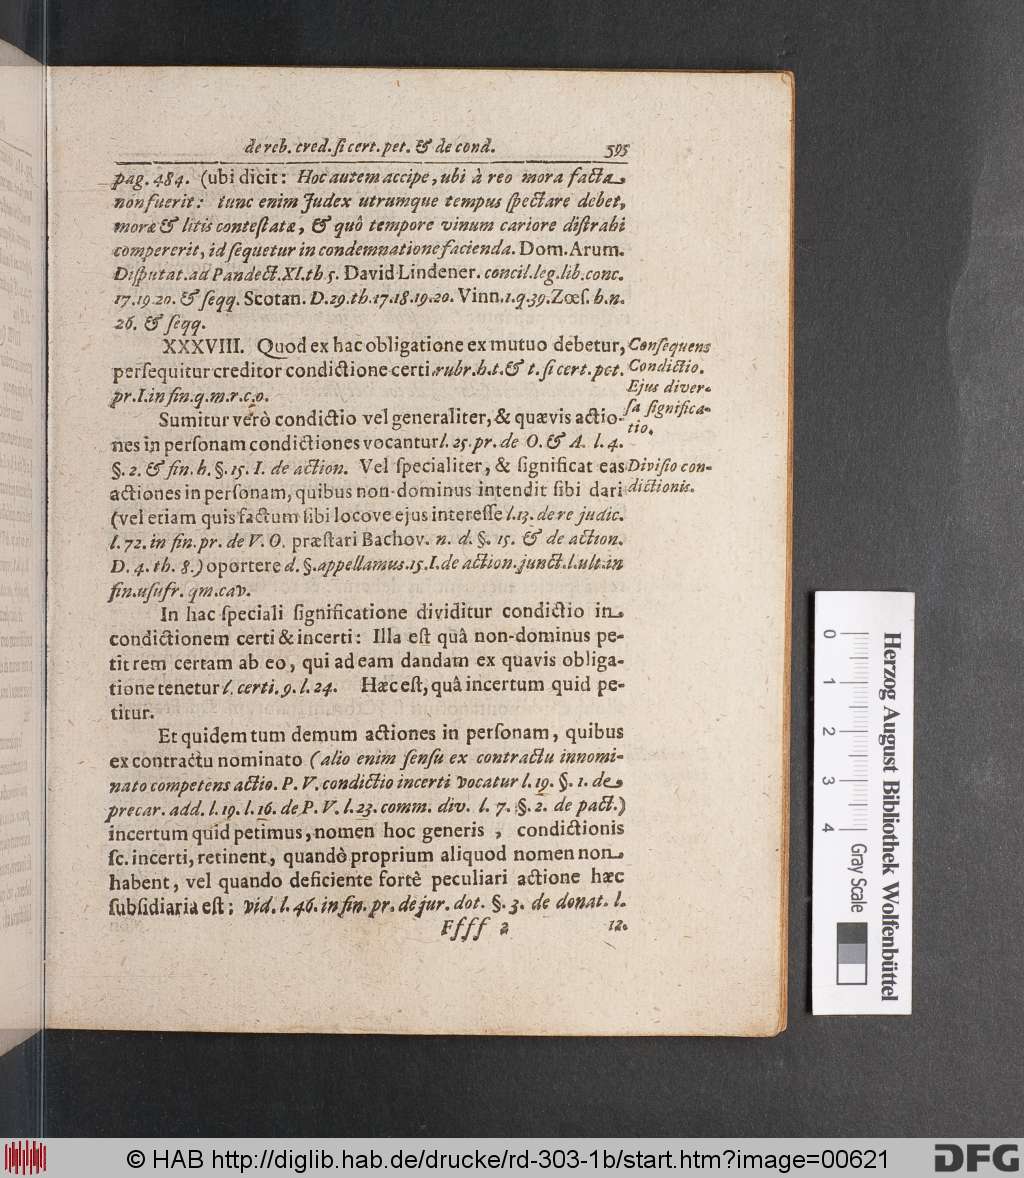 de reb. cred. ſi cert. pet. & de cond. 595
pag. 484. (ubi dicit: Hoc autem accipe, ubi à reo mora facta
non fuerit: tunc enim Judex utrumque tempus ſpectare debet,
moræ & litis conteſtatæ, & quô tempore vinum cariore diſtrahi
compererit, id ſequetur in condemnatione facienda. Dom. Arum.
Diſputat. ad Pandect. XI. th 5. David Lindener. concil. leg. lib. conc.
17. 19 20. & ſeqq. Scotan. D. 29. th. 17. 18. 19. 20. Vinn. 1. q. 39. Zœſ. h. n.
26. & ſeqq.
XXXVIII. Quod ex hac obligatione ex mutuo debetur,
Conſequens
perſequitur creditor condictione certi. rubr. h. t. & t. ſi cert. pet.
Condictio.
pr. I. in fin. q. m. r. c. o.
Ejus diver-
ſa ſignifica-
tio.
Sumitur verò condictio vel generaliter, & quævis actio-
nes in perſonam condictiones vocantur l. 25. pr. de O. & A. l. 4.
§. 2. & fin. h. §. 15. I. de action. Vel ſpecialiter, & ſignificat eas
Diviſio con-
dictionis.
actiones in perſonam, quibus non-dominus intendit ſibi dari
(vel etiam quis factum ſibi locove ejus intereſſe l. 13. de re judic.
l. 72. in fin. pr. de V. O. præſtari Bachov. n. d. §. 15. & de action.
D. 4. th. 8.) oportere d. §. appellamus. 15. I. de action. junct. l. ult. in
fin. uſufr. qm. cav.
In hac ſpeciali ſignificatione dividitur condictio in
condictionem certi & incerti: Illa eſt quâ non-dominus pe-
tit rem certam ab eo, qui ad eam dandam ex quavis obliga-
tione tenetur l. certi. 9. l. 24. Hæc eſt, quâ incertum quid pe-
titur.
Et quidem tum demum actiones in perſonam, quibus
ex contractu nominato (alio enim ſenſu ex contractu innomi-
nato competens actio. P. V. condictio incerti vocatur l. 19. §. 1. de
precar. add. l. 19. l. 16. de P. V. l. 23. comm. div. l. 7. §. 2. de pact.)
incertum quid petimus, nomen hoc generis, condictionis
ſc. incerti, retinent, quandò proprium aliquod nomen non
habent, vel quando deficiente fortè peculiari actione hæc
ſubſidiaria eſt; vid. l. 46. in fin. pr. de jur. dot. §. 3. de donat. l.
Ffff 2 12.
0 1 2 3 4 Gray Scale
Herzog August Bibliothek Wolfenbüttel
© HAB http://diglib.hab.de/drucke/rd-303-1b/start.htm?image=00621
DFG